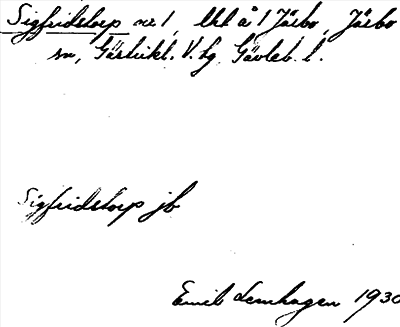 Sigfridstorp nr 1, lht å 1 Järbo, Järbo
sn, Gästrikl. V. hg Gävleb. l.
Sigfridstorp jb
Emil Lenhagen 1930